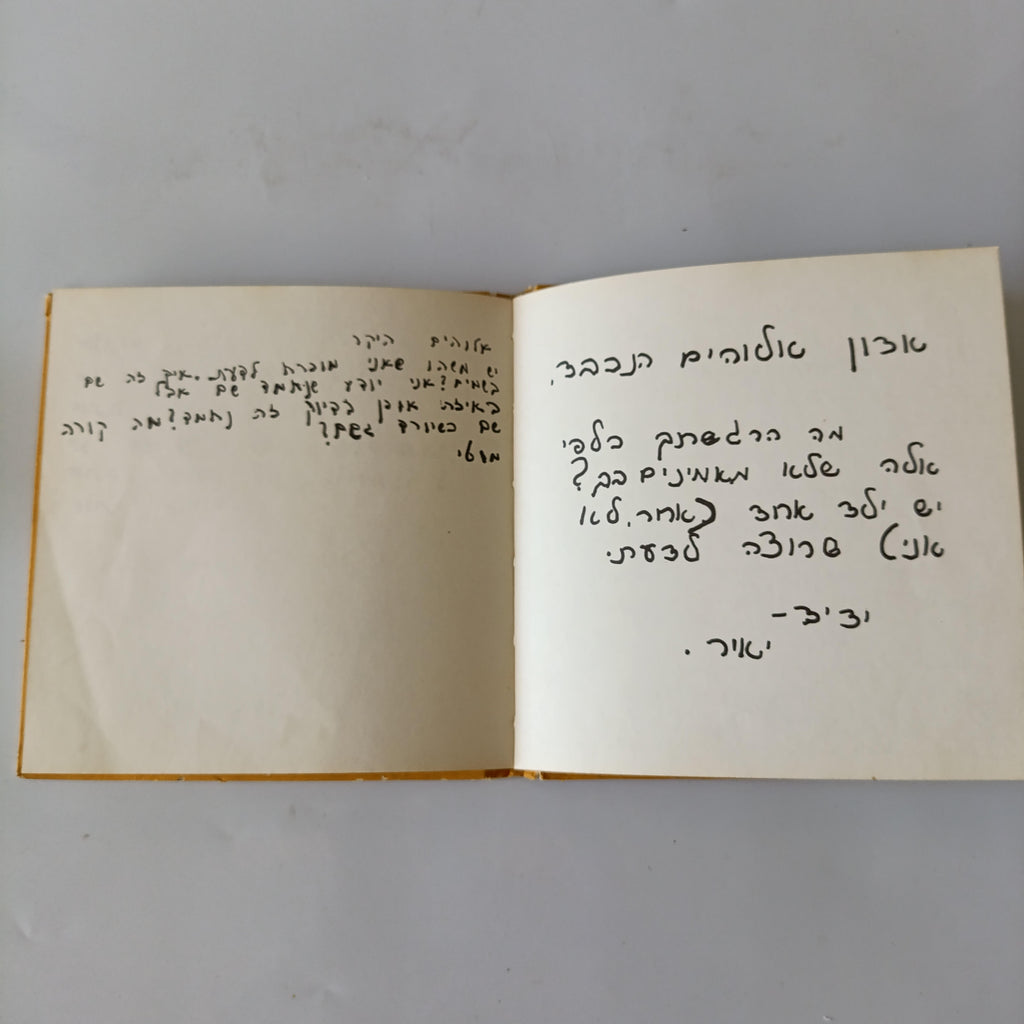 אלוהים היקר
יש משהו שאני מוכרח לדעת. איך זה שם
בשמים? אני יודע שנחמד שם אבל
באיזה אופן בדיוק זה נחמד? מה קורה
שם כשיורד גשם?
מוטי
אדון אלוהים הנכבד,
מה הרגשתך כלפי
אלה שלא מאמינים בך?
יש ילד אחד (אחר, לא
אני) שרוצה לדעת.
ידיד-
יאיר.